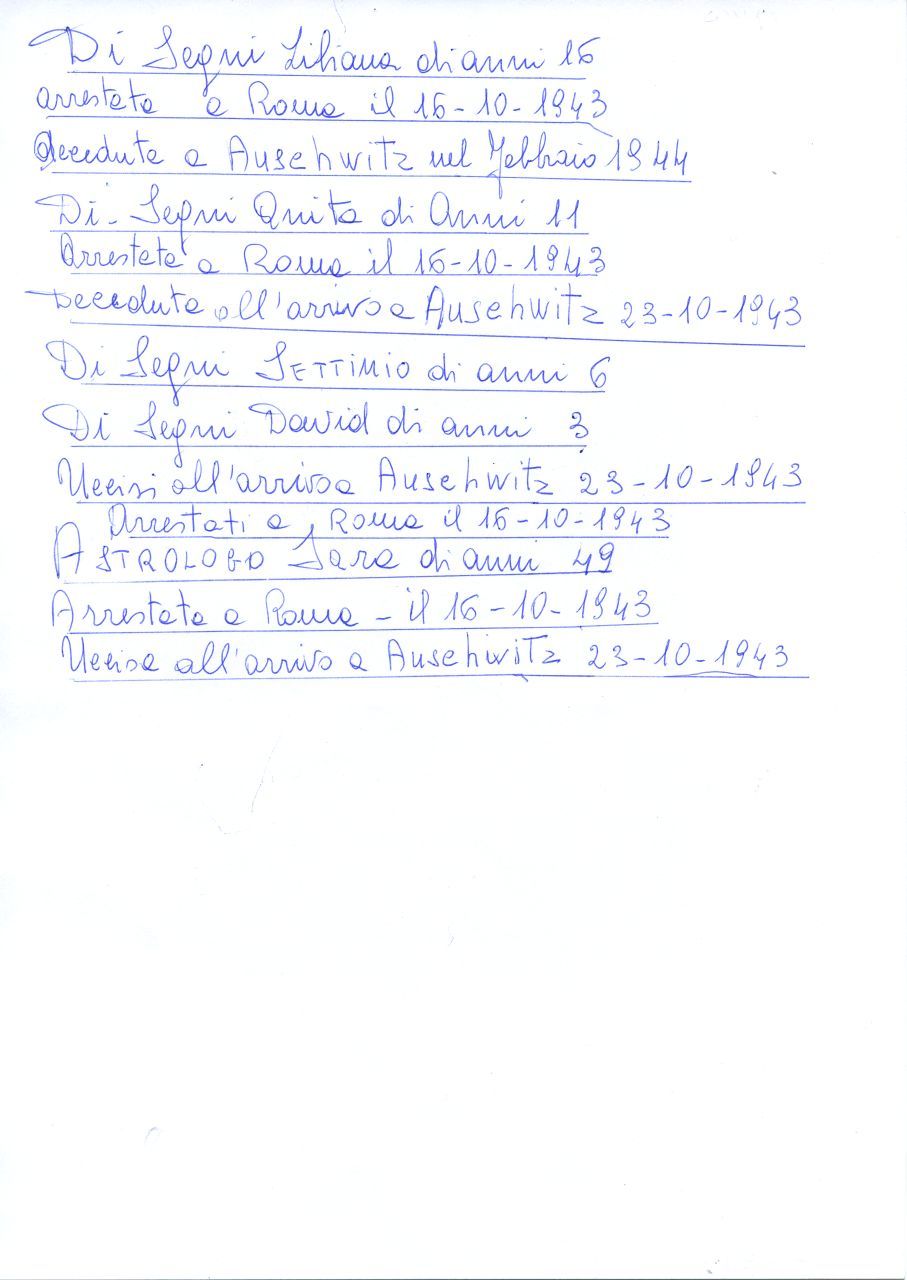 Di Segni Liliana di anni 16
arrestata a Roma il 16-10-1943
deceduta a Auschwitz nel Febbraio 1944
Di Segni Anita di Anni 11
Arrestata a Roma il 16-10-1943
Deceduta all'arrivo a Auschwitz 23-10-1943
Di Segni SETTIMIO di anni 6
Di Segni David di anni 3
Uccisi all'arrivo a Auschwitz 23-10-1943
Arrestati a Roma il 16-10-1943
ASTROLOGO Sara di anni 49
Arrestata a Roma - il 16-10-1943
Uccisa all'arrivo a Auschwitz 23-10-1943